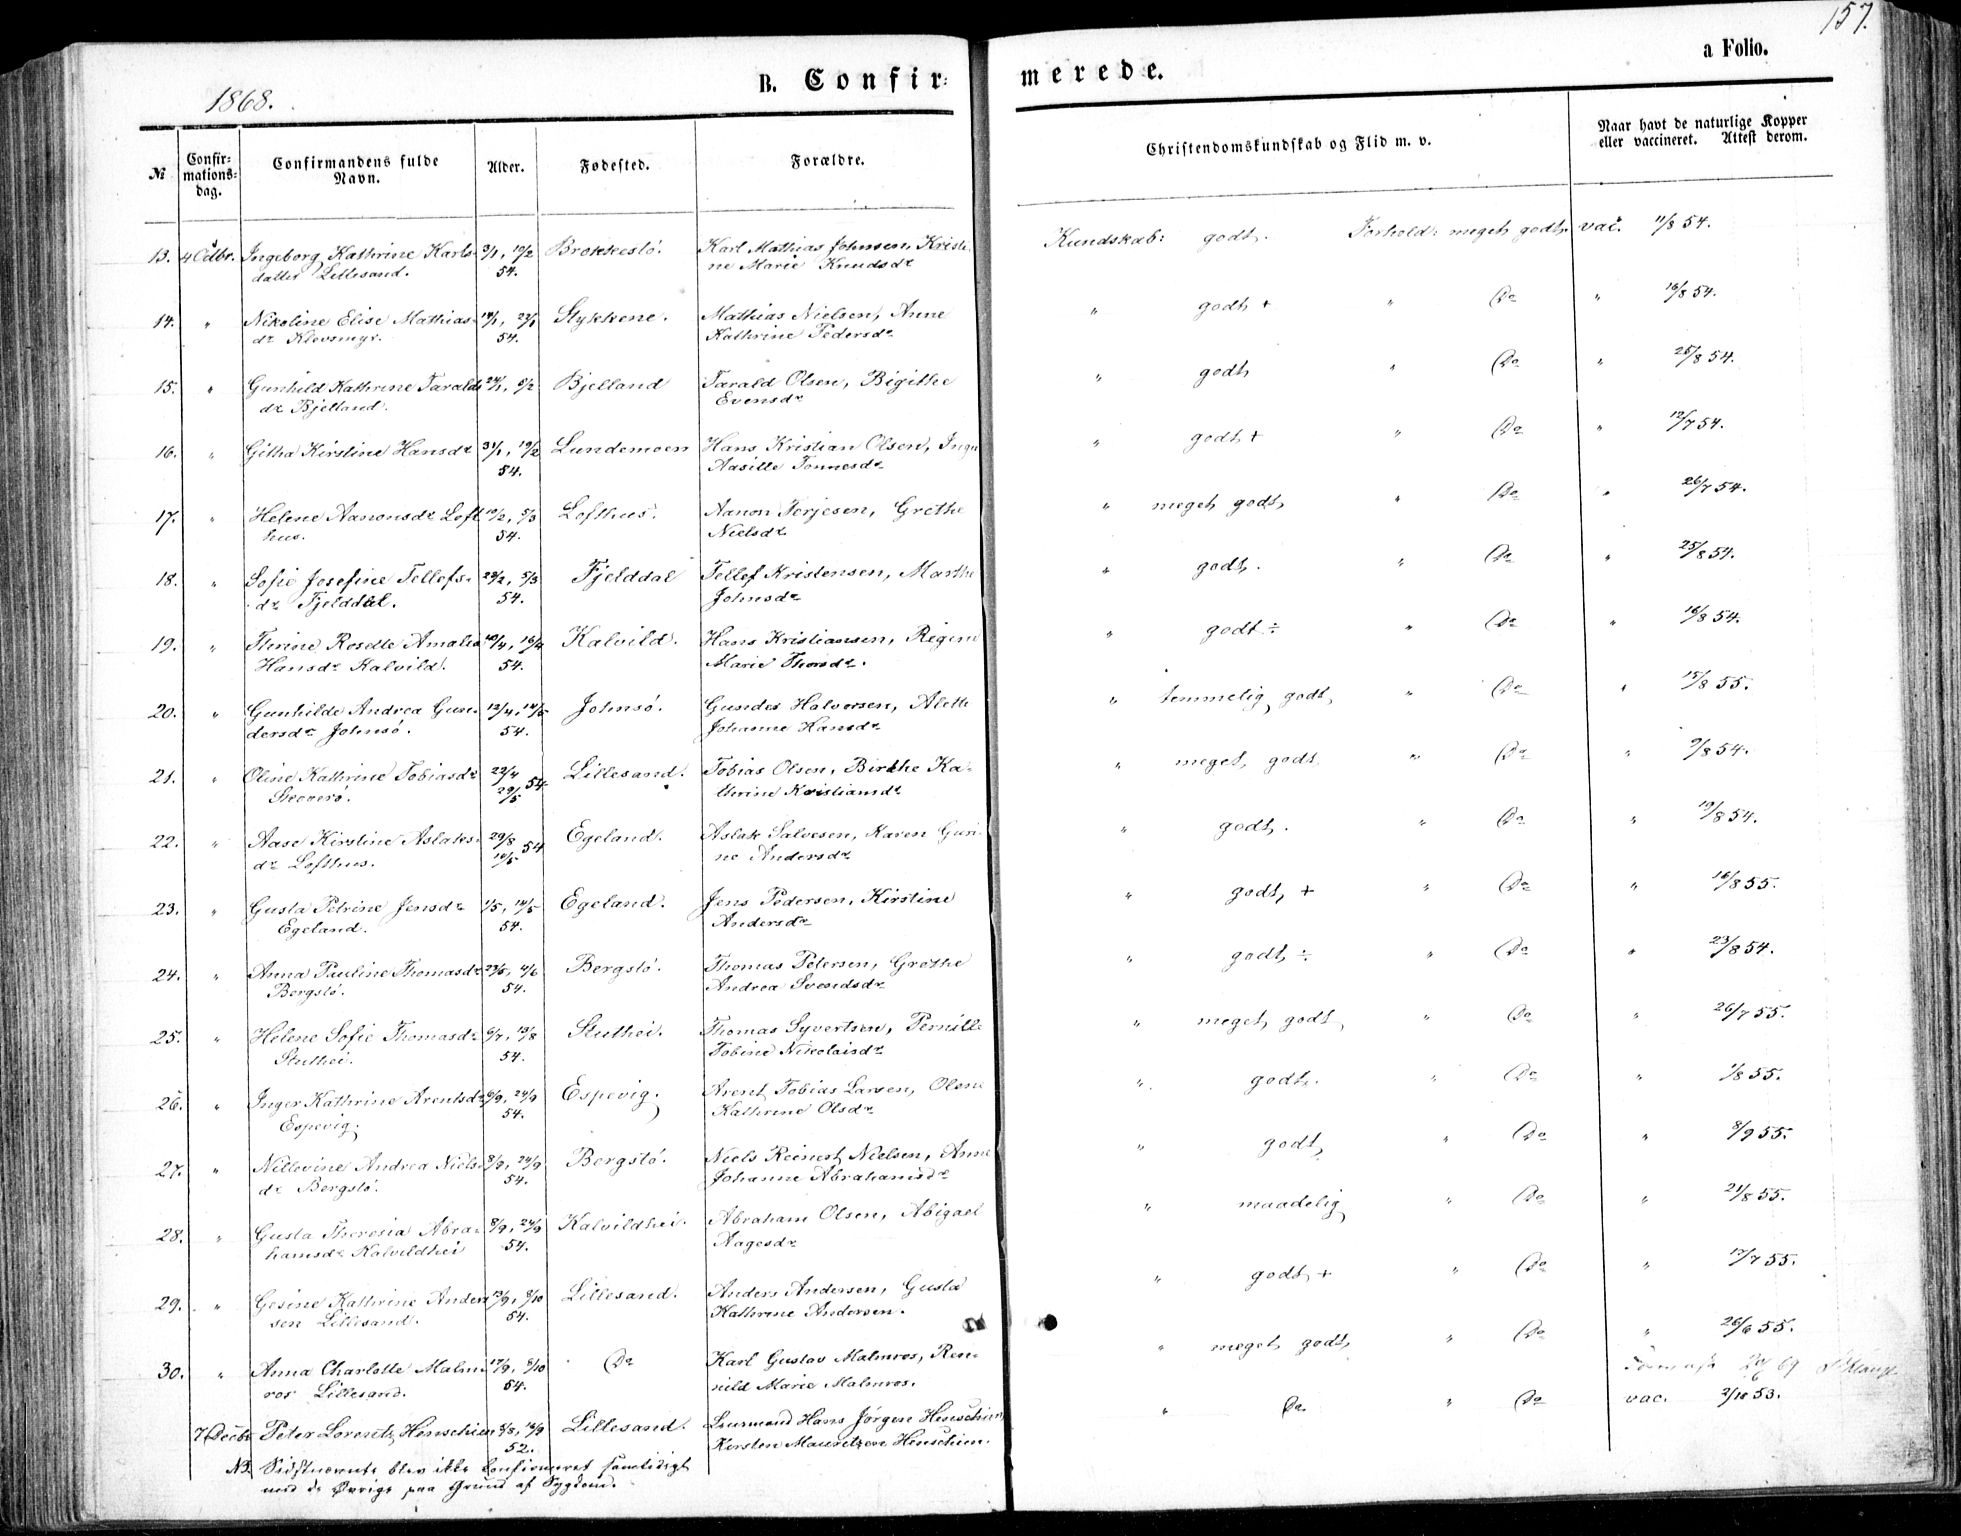 157.
a Folio.
1868.
B. Confir=
merede.
№
Confir=
mations=
dag.
Confirmandens fulde
Navn.
Alder.
Fødested.
Forældre.
Christendomskundskab og Flid m. v.
Naar havt de naturlige Kopper
eller vaccineret. Attest derom.
13. 4 Octbr. Ingeborg Kathrine Karls- 3/1, 19/2 Brøkkestö. Karl Mathias Johnsen, Kristi- Kundskab: godt. Forhold: meget godt. vac. 11/8 54.
datter Lillesand. 54. ne Marie Knudsdr
14. " Nikoline Elise Mathias- Stykkene. Mathias Nielsen, Anne " godt + " Do " 16/8 54.
dr Klevsmyr. 54. Kathrine Pedersdr
15. " Gunhild Kathrine Taralds Bjelland Tarald Olsen, Bigithe " godt " Do " 25/8 54.
dr Bjelland. Evensdr
16. " Githa Kirstine Hansdr 31/1, 19/2 Lundemoen Hans Kristian Olsen, " godt + " Do " 12/7 54.
54. Aasille Tonnesdr
17. " Helene Aanonsdr Loft 5/3 Lofthus. Aanon Terjesen, Grethe " meget godt " Do " 26/7 54.
hus. 54. Nielsdr
18. " Sofie Josefine Tellefs- 5/3 Fjelddal Tellef Kristensen, Marthe " godt. " Do " 25/8 54.
dr Fjelddal. 54. Johnsdr
19. " Thrine Rosette Amalia 16/4 Kalvild. Hans Kristiansen, Regine " godt ÷ " Do " 16/8 54.
Hansdr Kalvild. 54. Marie Thorsdr.
20. " Gunhilde Andrea Gun- 12/4, 14/5 Johnsö. Gundes Halvorsen, Alette " temmelig godt " Do " 15/8 55.
dersdr Johnsö. 54. Johanne Hansdr
21. " Oline Kathrine Tobiasdr 22/4 54 Lillesand. Tobias Olsen, Birthe Ka- " meget godt " Do " 9/8 54.
29/5 thrine Kristiansdr
22. " Aase Kirstine Aslaks- 29/8 54 Egeland. Aslak Salvesen, Karen Guri- " godt. " Do " 19/8 54.
dr Lofthus. ne Andersdr
23. " Gusta Petrine Jensdr 1/5, 14/5 Egeland. Jens Pedersen, Kirstine " godt + " Do " 16/8 55.
Egeland. 54. Andersdr
24. " Anna Pauline Thomasdr 23/5, 4/6 Bergstö. Thomas Petersen, Grethe " godt ÷ " Do " 23/8 54.
Bergstö. 54. Andrea Svendsdr
25. " Helene Sofie Thomasdr 6/7, 13/8 Stuthei. Thomas Syvertsen, Pernille " meget godt " Do " 26/7 55.
Stuthei. 54. Tobine Nikolaisdr
26. " Inger Kathrine Arentsdr 6/9, 24/9 Espevig. Arent Tobias Larsen, Olene " godt. " Do " 1/8 55.
Espevig. 54. Kathrine Olsdr
27. " Nillevine Andrea Niels- 8/9, 24/9 Bergstö. Niels Reinert Nielsen, Anne " godt " Do " 8/9 55.
dr Bergstö. 54. Johanne Abrahamsdr
28. " Gusta Theresia Abra- 8/9, 24/9 Kalvildhei. Abraham Olsen, Abigael " maadelig " Do " 21/8 55.
hamsdr Kalvildhei 54. Aagesdr
29. " Gesine Kathrine Ander 13/9, 8/10 Lillesand. Anders Andersen, Gusta " godt + " Do " 17/7 55.
sen Lillesand. 54. Kathrine Andersen.
30. " Anna Charlotte Malm- 17/9, 8/10 Do Karl Gustav Malmros, Ren- " meget godt " Do " 26/6 55.
ros Lillesand. 54. hild Marie Malmros.
7 Decbr Peter Lorentz Henschien 5/8, 12/9 Lillesand. Hans Jörgen Henschien, " Do " Do vac. 2/10 53.
52. Kirsten Mauritzen Henschien.
NB Sidstnævnte blev ikke confirmeret samtidigt
med de Øvrige paa Grund af Sygdom.